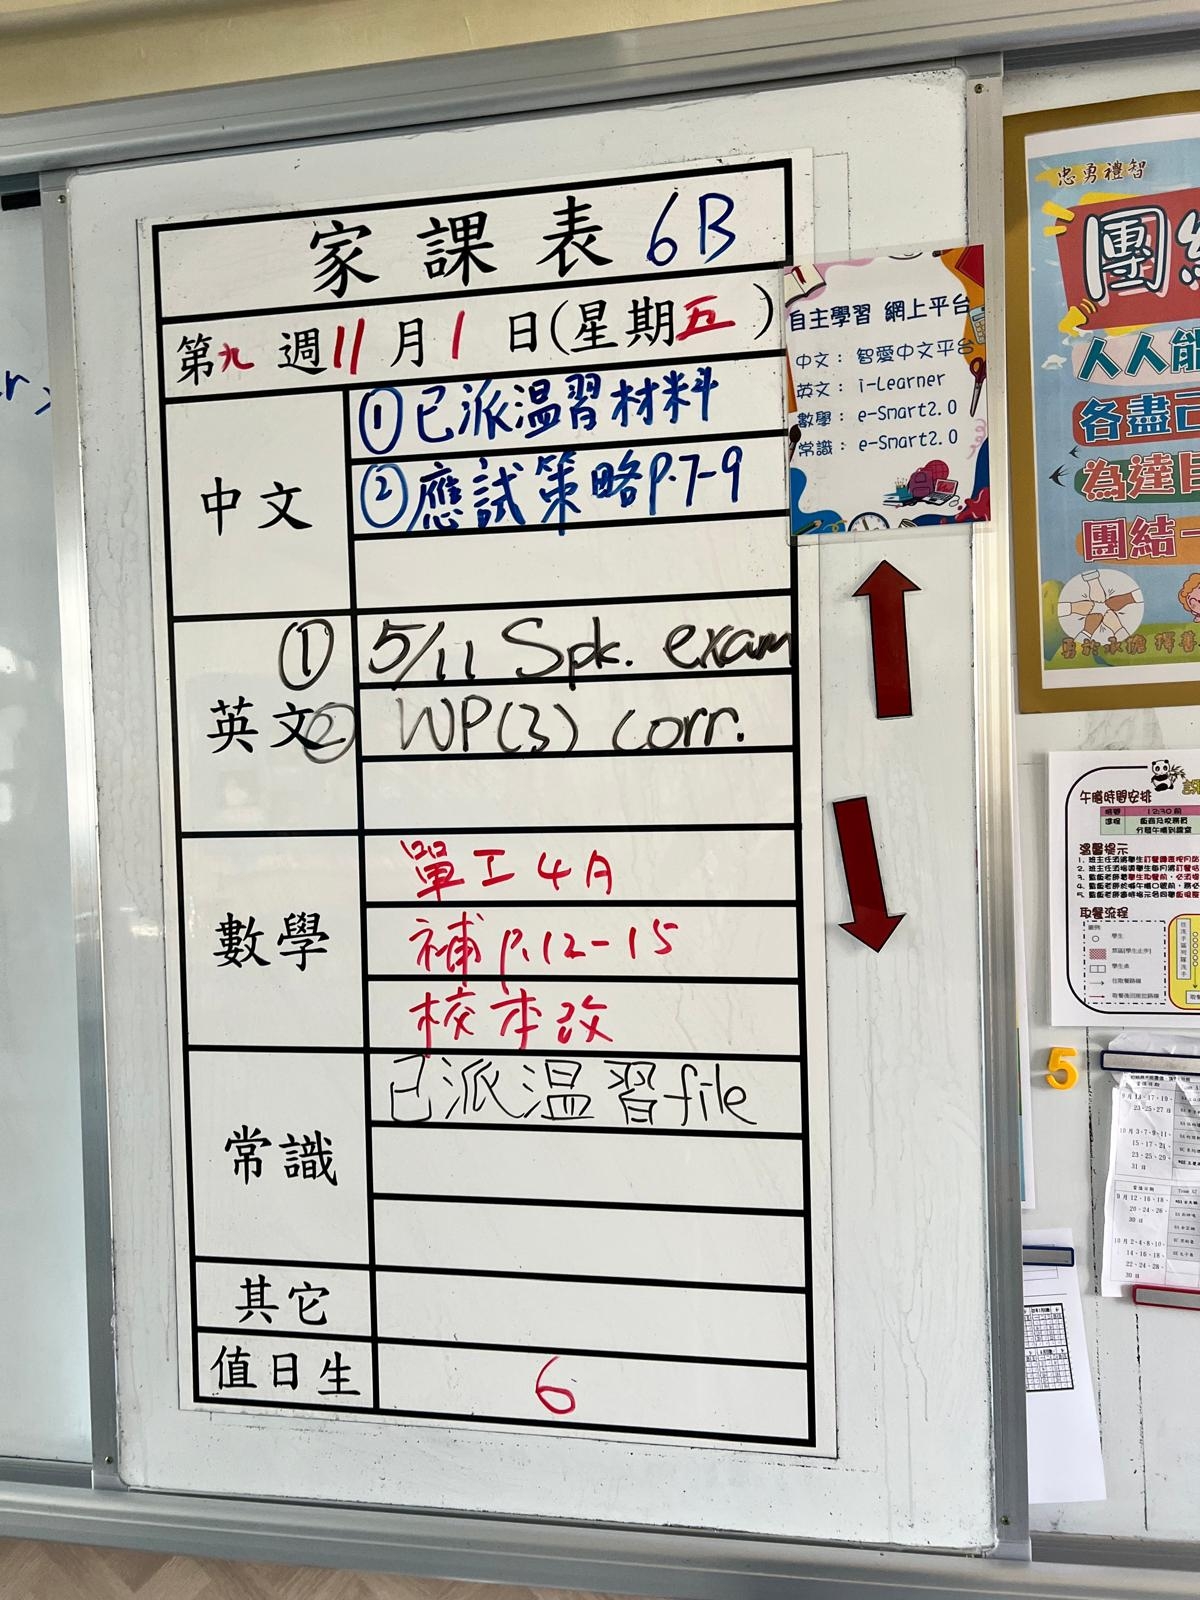 家課表 6B
第九週 11月1日(星期五)
中文
①已派溫習材料
②應試策略p.7-9
英文
① 5/11 Spk. exam
② WP(3) corr.
數學
單工4A
補p.12-15
校本改
常識
已派溫習file
其它
值日生
6
自主學習 網上平台
中文：智愛中文平台
英文：i-Learner
數學：e-Smart2.0
常識：e-Smart2.0
忠勇禮智
團
人人能
各盡己
為達目
團結一
午膳時間安排
12:30前
溫馨提示
取餐流程
學生
5